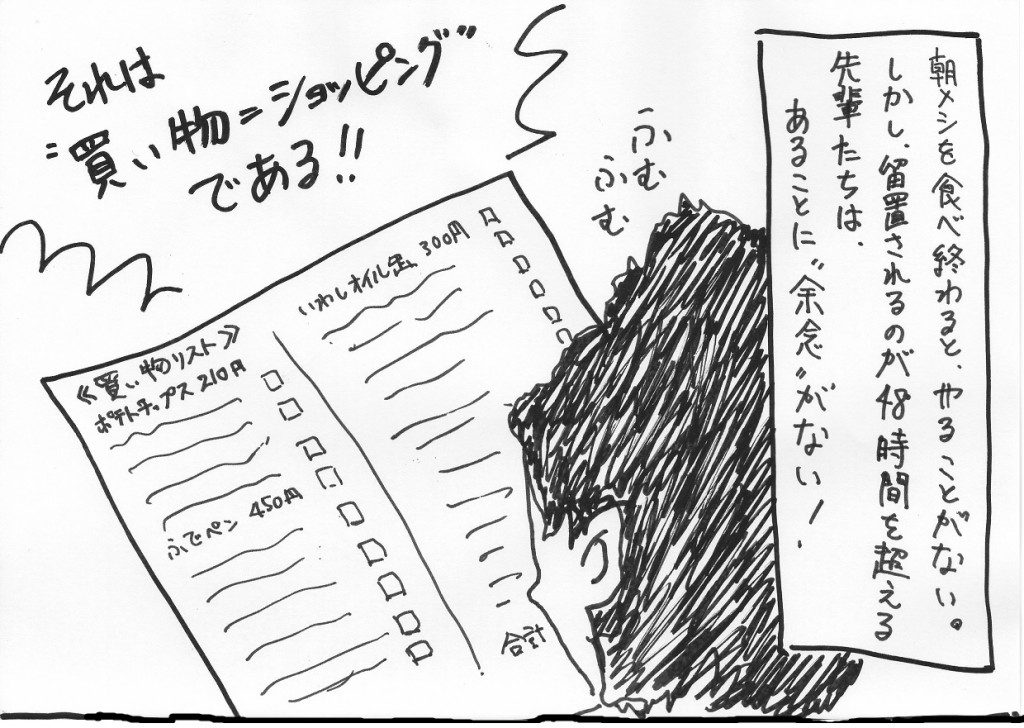 朝メシを食べ終わると、やることがない。
しかし、留置されるのが48時間を超える
先輩たちは、
あることに“余念”がない！
ふむ
ふむ
それは
“買い物=ショッピング”
である!!
≪買い物リスト≫
ポテトチップス 210円
ふでペン 450円
いわしオイル缶 300円
合計